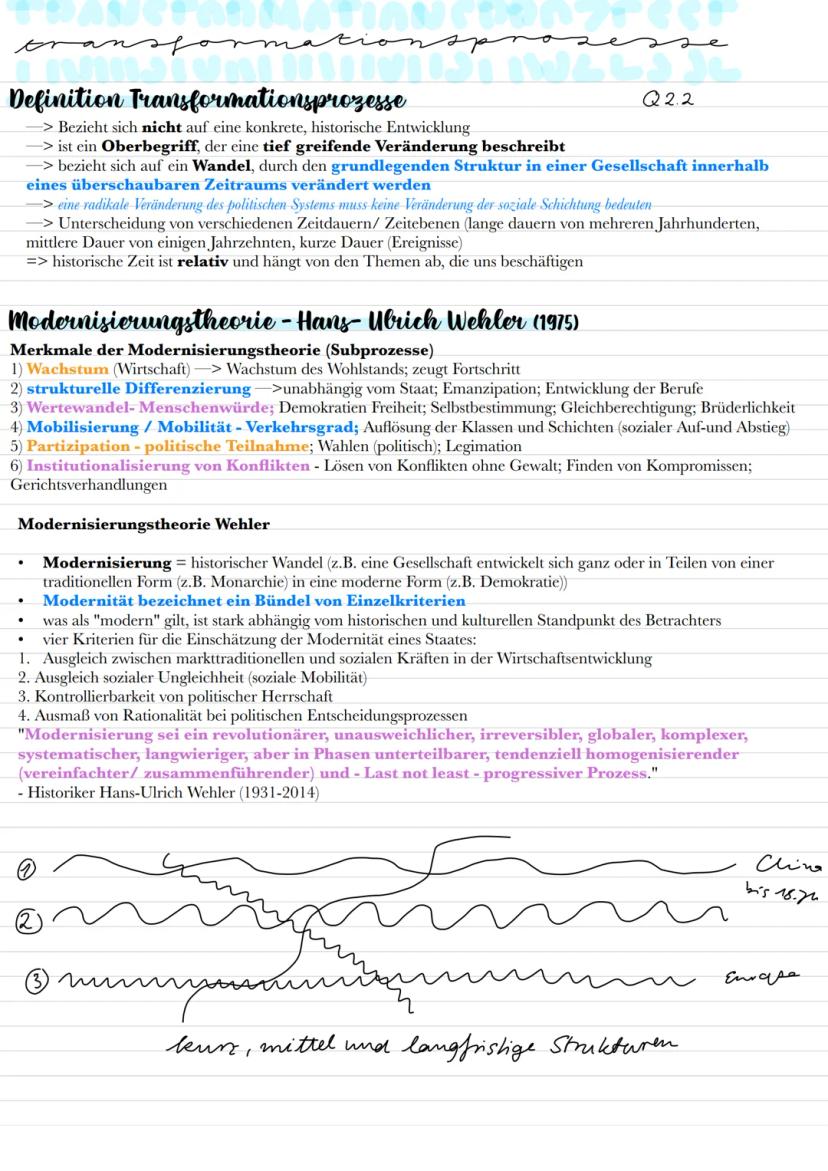 transformationsprozesse
Definition Transformationsprozesse
Q2.2
—> Bezieht sich nicht auf eine konkrete, historische Entwicklung
—> ist ein Oberbegriff, der eine tief greifende Veränderung beschreibt
—> bezieht sich auf ein Wandel, durch den grundlegenden Struktur in einer Gesellschaft innerhalb
eines überschaubaren Zeitraums verändert werden
—> eine radikale Veränderung des politischen Systems muss keine Veränderung der soziale Schichtung bedeuten
—> Unterscheidung von verschiedenen Zeitdauern/ Zeitebenen (lange dauern von mehreren Jahrhunderten,
mittlere Dauer von einigen Jahrzehnten, kurze Dauer (Ereignisse)
=> historische Zeit ist relativ und hängt von den Themen ab, die uns beschäftigen
Modernisierungstheorie - Hans- Ulbrich Wehler (1975)
Merkmale der Modernisierungstheorie (Subprozesse)
1) Wachstum (Wirtschaft) —> Wachstum des Wohlstands; zeugt Fortschritt
2) strukturelle Differenzierung —>unabhängig vom Staat; Emanzipation; Entwicklung der Berufe
3) Wertewandel- Menschenwürde; Demokratien Freiheit; Selbstbestimmung; Gleichberechtigung; Brüderlichkeit
4) Mobilisierung / Mobilität - Verkehrsgrad; Auflösung der Klassen und Schichten (sozialer Auf-und Abstieg)
5) Partizipation - politische Teilnahme; Wahlen (politisch); Legimation
6) Institutionalisierung von Konflikten - Lösen von Konflikten ohne Gewalt; Finden von Kompromissen;
Gerichtsverhandlungen
Modernisierungstheorie Wehler
• Modernisierung = historischer Wandel (z.B. eine Gesellschaft entwickelt sich ganz oder in Teilen von einer
traditionellen Form (z.B. Monarchie) in eine moderne Form (z.B. Demokratie))
• Modernität bezeichnet ein Bündel von Einzelkriterien
• was als "modern" gilt, ist stark abhängig vom historischen und kulturellen Standpunkt des Betrachters
• vier Kriterien für die Einschätzung der Modernität eines Staates:
1. Ausgleich zwischen markttraditionellen und sozialen Kräften in der Wirtschaftsentwicklung
2. Ausgleich sozialer Ungleichheit (soziale Mobilität)
3. Kontrollierbarkeit von politischer Herrschaft
4. Ausmaß von Rationalität bei politischen Entscheidungsprozessen
"Modernisierung sei ein revolutionärer, unausweichlicher, irreversibler, globaler, komplexer,
systematischer, langwieriger, aber in Phasen unterteilbarer, tendenziell homogenisierender
(vereinfachter/ zusammenführender) und - Last not least - progressiver Prozess."
- Historiker Hans-Ulrich Wehler (1931-2014)
① China
bis 18. Jh
②
③ Europa
kurz, mittel und langfristige Strukturen